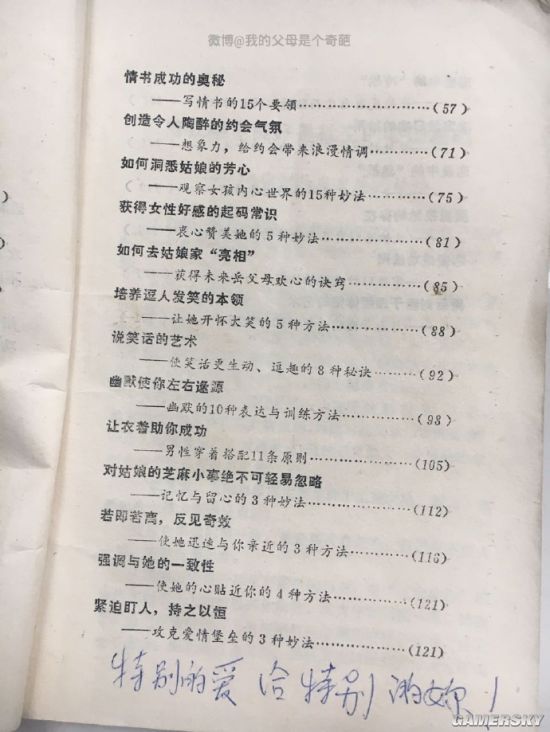 微博@我的父母是个奇葩
情书成功的奥秘
——写情书的15个要领……………………(57)
创造令人陶醉的约会气氛
——想象力，给约会带来浪漫情调…………(71)
如何洞悉姑娘的芳心
——观察女孩内心世界的15种妙法…………(75)
获得女性好感的起码常识
——衷心赞美她的5种妙法…………………(81)
如何去姑娘家“亮相”
——获得未来岳父母欢心的诀窍……………(85)
培养逗人发笑的本领
——让她开怀大笑的5种方法………………(88)
说笑话的艺术
——使笑话更生动、逗趣的8种秘诀………(92)
幽默使你左右逢源
——幽默的10种表达与训练方法……………(98)
让衣着助你成功
——男性穿着搭配11条原则…………………(105)
对姑娘的芝麻小事绝不可轻易忽略
——记忆与留心的3种妙法…………………(112)
若即若离，反见奇效
——使她迅速与你亲近的3种方法…………(116)
强调与她的一致性
——使她的心贴近你的4种方法……………(121)
紧迫盯人，持之以恒
——攻克爱情堡垒的3种妙法………………(121)
特别的爱给特别的妳！
GAMERSKY